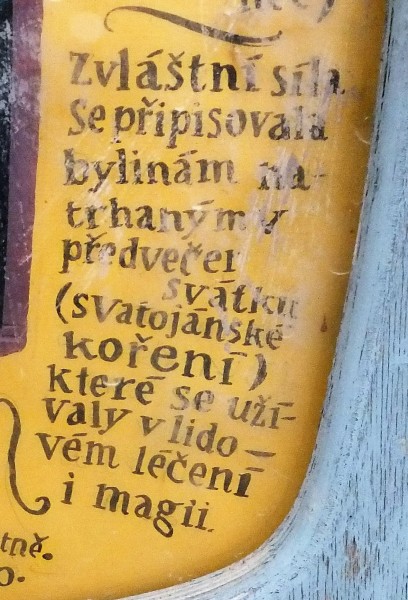 Zvláštní síla
Se připisovala
bylinám na-
trhaným v
předvečer
svátku
(svatojánské
koření)
které se uží-
valy v lido-
vém léčení
i magii.